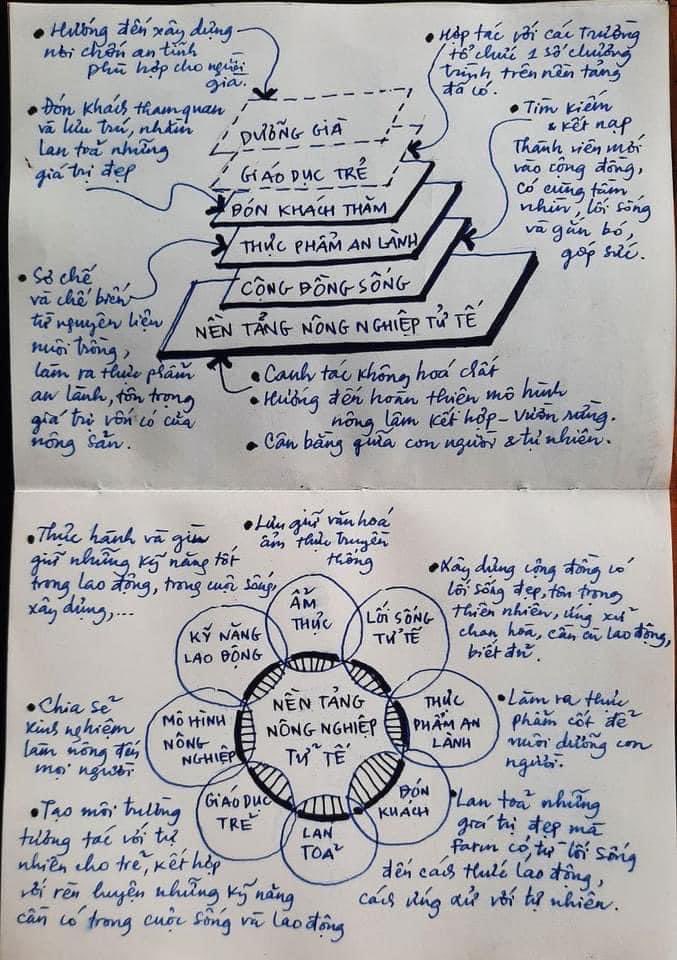 • Hướng đến xây dựng
nơi chốn an tĩnh
phù hợp cho người
già.
• Đón khách tham quan
và lưu trú, nhằm
lan toả những
giá trị đẹp
• Sơ chế
và chế biến
từ nguyên liệu
nuôi trồng,
làm ra thực phẩm
an lành, tôn trọng
giá trị vốn có của
nông sản.
DƯỠNG GIÀ
GIÁO DỤC TRẺ
ĐÓN KHÁCH THĂM
THỰC PHẨM AN LÀNH
CỘNG ĐỒNG SỐNG
NỀN TẢNG NÔNG NGHIỆP TỬ TẾ
• Hợp tác với các trường
tổ chức 1 số chương
trình trên nền tảng
đã có.
• Tìm kiếm
& kết nạp
Thành viên mới
vào cộng đồng,
có cùng tầm
nhìn, lối sống
và gắn bó,
góp sức.
• Canh tác không hoá chất
• Hướng đến hoàn thiện mô hình
nông lâm kết hợp - vườn rừng.
• Cân bằng giữa con người & tự nhiên.
• Thực hành và gìn
giữ những kỹ năng tốt
trong lao động, trong cuộc sống,
xây dựng,...
• Lưu giữ văn hoá
ẩm thực truyền
thống
• Xây dựng cộng đồng có
lối sống đẹp, tôn trọng
thiên nhiên, ứng xử
chan hoà, cần cù lao động,
biết đủ.
ẨM
THỰC
KỸ NĂNG
LAO ĐỘNG
LỐI SỐNG
TỬ TẾ
MÔ HÌNH
NÔNG
NGHIỆP
NỀN TẢNG
NÔNG NGHIỆP
TỬ TẾ
THỰC
PHẨM AN
LÀNH
GIÁO DỤC
TRẺ
LAN
TOẢ
ĐÓN
KHÁCH
• Chia sẻ
kinh nghiệm
làm nông đến
mọi người
• Làm ra thực
phẩm cốt để
nuôi dưỡng con
người.
• Tạo môi trường
tương tác với tự
nhiên cho trẻ, kết hợp
với rèn luyện những kỹ năng
cần có trong cuộc sống và lao động
• Lan toả những
giá trị đẹp mà
farm có, từ lối sống
đến cách thức lao động,
cách ứng xử với tự nhiên.